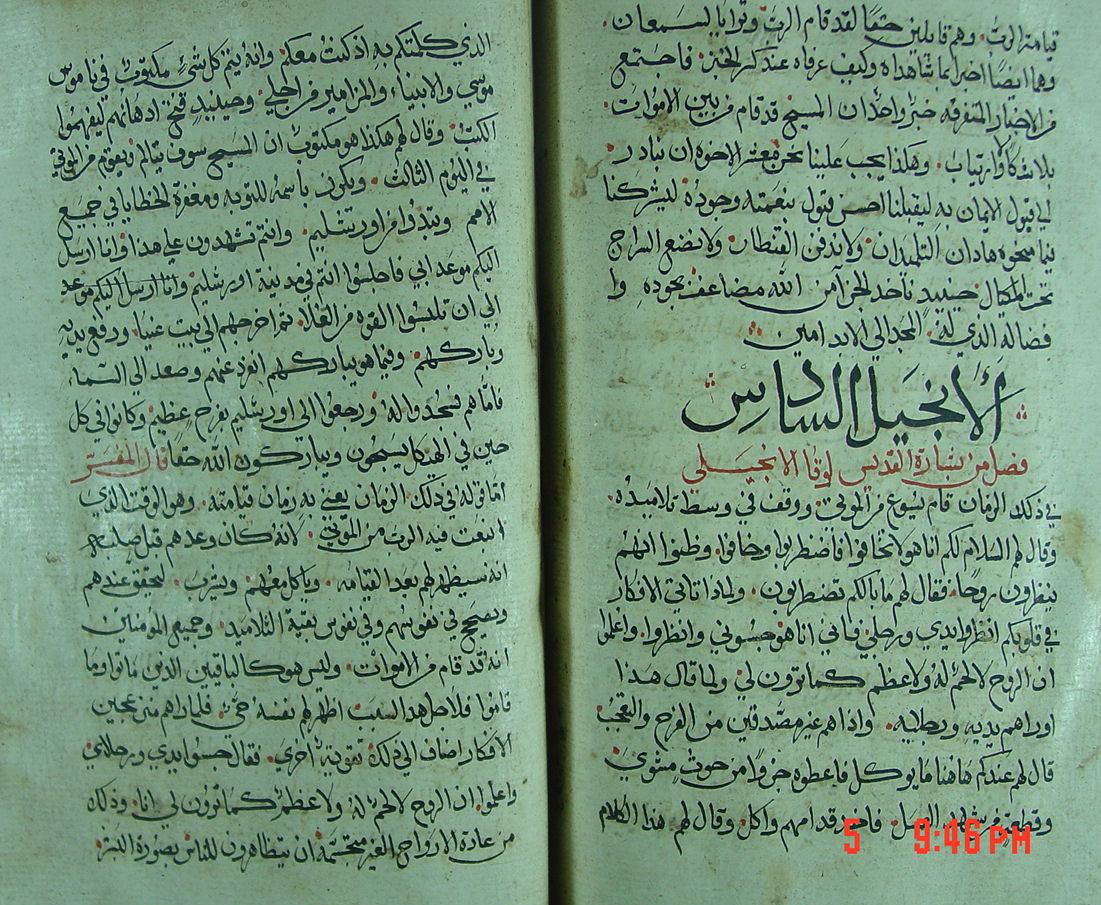 قيامة الرب • وهم قايلين حقًا لقد قام الرب وترايا لسمعان
وهما ايضًا اخبرا بما شاهداه وكيف عرفاه عند كسر الخبز • فاجتمع
من الاخبار المتفرقه خبرًا واحدًا ان المسيح قد قام من بين الاموات
بلا شكٍ وارتياب • وهكذا يجب علينا نحن معشر الاخوة ان نبادر
الى قبول الايمان به ليقبلنا احسن قبول بنعمته وجوده ليشركنا
بما منحوه هادان التلميدان • ولا ندفن القنطار • ولا نضع السراج
تحت المكيال حينيدٍ ناخد الجزا من الله مضاعف بجوده وا
فضاله الدي له المجد الى الابد امين
الانجيل السادس
فصل من بشارة القديس لوقا الانجيلي
في ذلك الزمان قام يسوع من الموتى • ووقف في وسط تلاميده •
وقال لهم السلام لكم انا هو لا تخافوا فاضطربوا وخافوا • وظنوا انهم
ينظرون روحًا • فقال لهم ما بالكم تضطربون • ولمادا تاتي الافكار
في قلوبكم انظروا يدي ورجلي فاني انا هو جسوني وانظروا • واعلموا
ان الروح لا لحم له ولا عظم كما ترون لي • ولما قال هدا
اوراهم يديه ورجليه • واذا هم غير مصدقين من الفرح والتعجب
قال لهم عندكم هاهنا ما يوكل فاعطوه جزوًا من حوتٍ مشوي •
وقطعةٍ من شهد العسل • فاخد قدامهم واكل وقال لهم هذا الكلام
5 9:46 PM
الدي كلمتكم به اذ كنت معكم • وانه يتم كل شيٍ مكتوب في ناموس
موسي والانبياء والمزامير من اجلي • وحينيدٍ فتح ادهانهم ليفهموا
الكتب • وقال لهم هكذا هو مكتوب ان المسيح سوف يتالم ويقوم من الموتى
في اليوم الثالث • ويكون باسمه للتوبه ومغفرة الخطايا في جميع
الامم وتبدوا من اورشليم • وانتم تشهدون على هذا وانا ارسل
اليكم موعد ابي فاجلسوا انتم في مدينة اورشليم وانا ارسل اليكم موعد
الى ان تلبسوا القوه من العلا • ثم اخرجهم الى بيت عنيا • ورفع يديه
وباركهم • وفيما هو يباركهم انفرد عنهم وصعد الى السماء
فاما هم فسجدوا له • ورجعوا الى اورشليم بفرحٍ عظيم • وكانوا في كل
حين في الهيكل يسبحون ويباركون الله حقًا قال المفسر
اما قوله في دلك الزمان يعني به زمان قيامته • وهو الوقت الدي
انبعث فيه الرب من الموتى • لانه كان وعدهم قبل صلبه
انه سيظهر لهم بعد القيامه • وياكل معهم • ويشرب • ليحقق عندهم
ويصحح في نفوسهم وفي نفوس بقية التلاميد • وجميع المومنين
انه قد قام من الاموات • وليس هو كالباقين الدين ماتوا وما
قاموا فلاجل هدا السبب اظهر لهم نفسه حيٍ • فلما راهم منزعجين
الافكار اضاف الى ذلك تقويةً اخري • فقال جسوا يدي ورجلاي
واعلموا ان الروح لا لحم له ولا عظم كما ترون لي انا • وذلك
من عادة الارواح الغير متجسمة ان يتظاهرون للناس بصورة البشر •